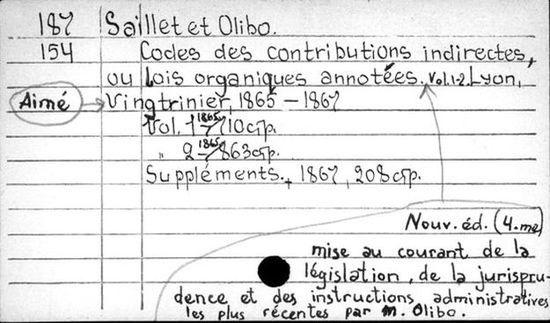 187 Saillet et Olibo.
154 Codes des contributions indirectes,
ou Lois organiques annotées. Vol. 1-2. Lyon,
Aimé Vingtrinier, 1865 – 1867
Vol. 1 – 1865 710 стр.
„ 2 – 1865 863 стр.
Suppléments. , 1867, 208 стр.
Nouv. éd. (4.me)
mise au courant de la
législation, de la jurispru-
dence et des instructions administratives
les plus récentes par M. Olibo.